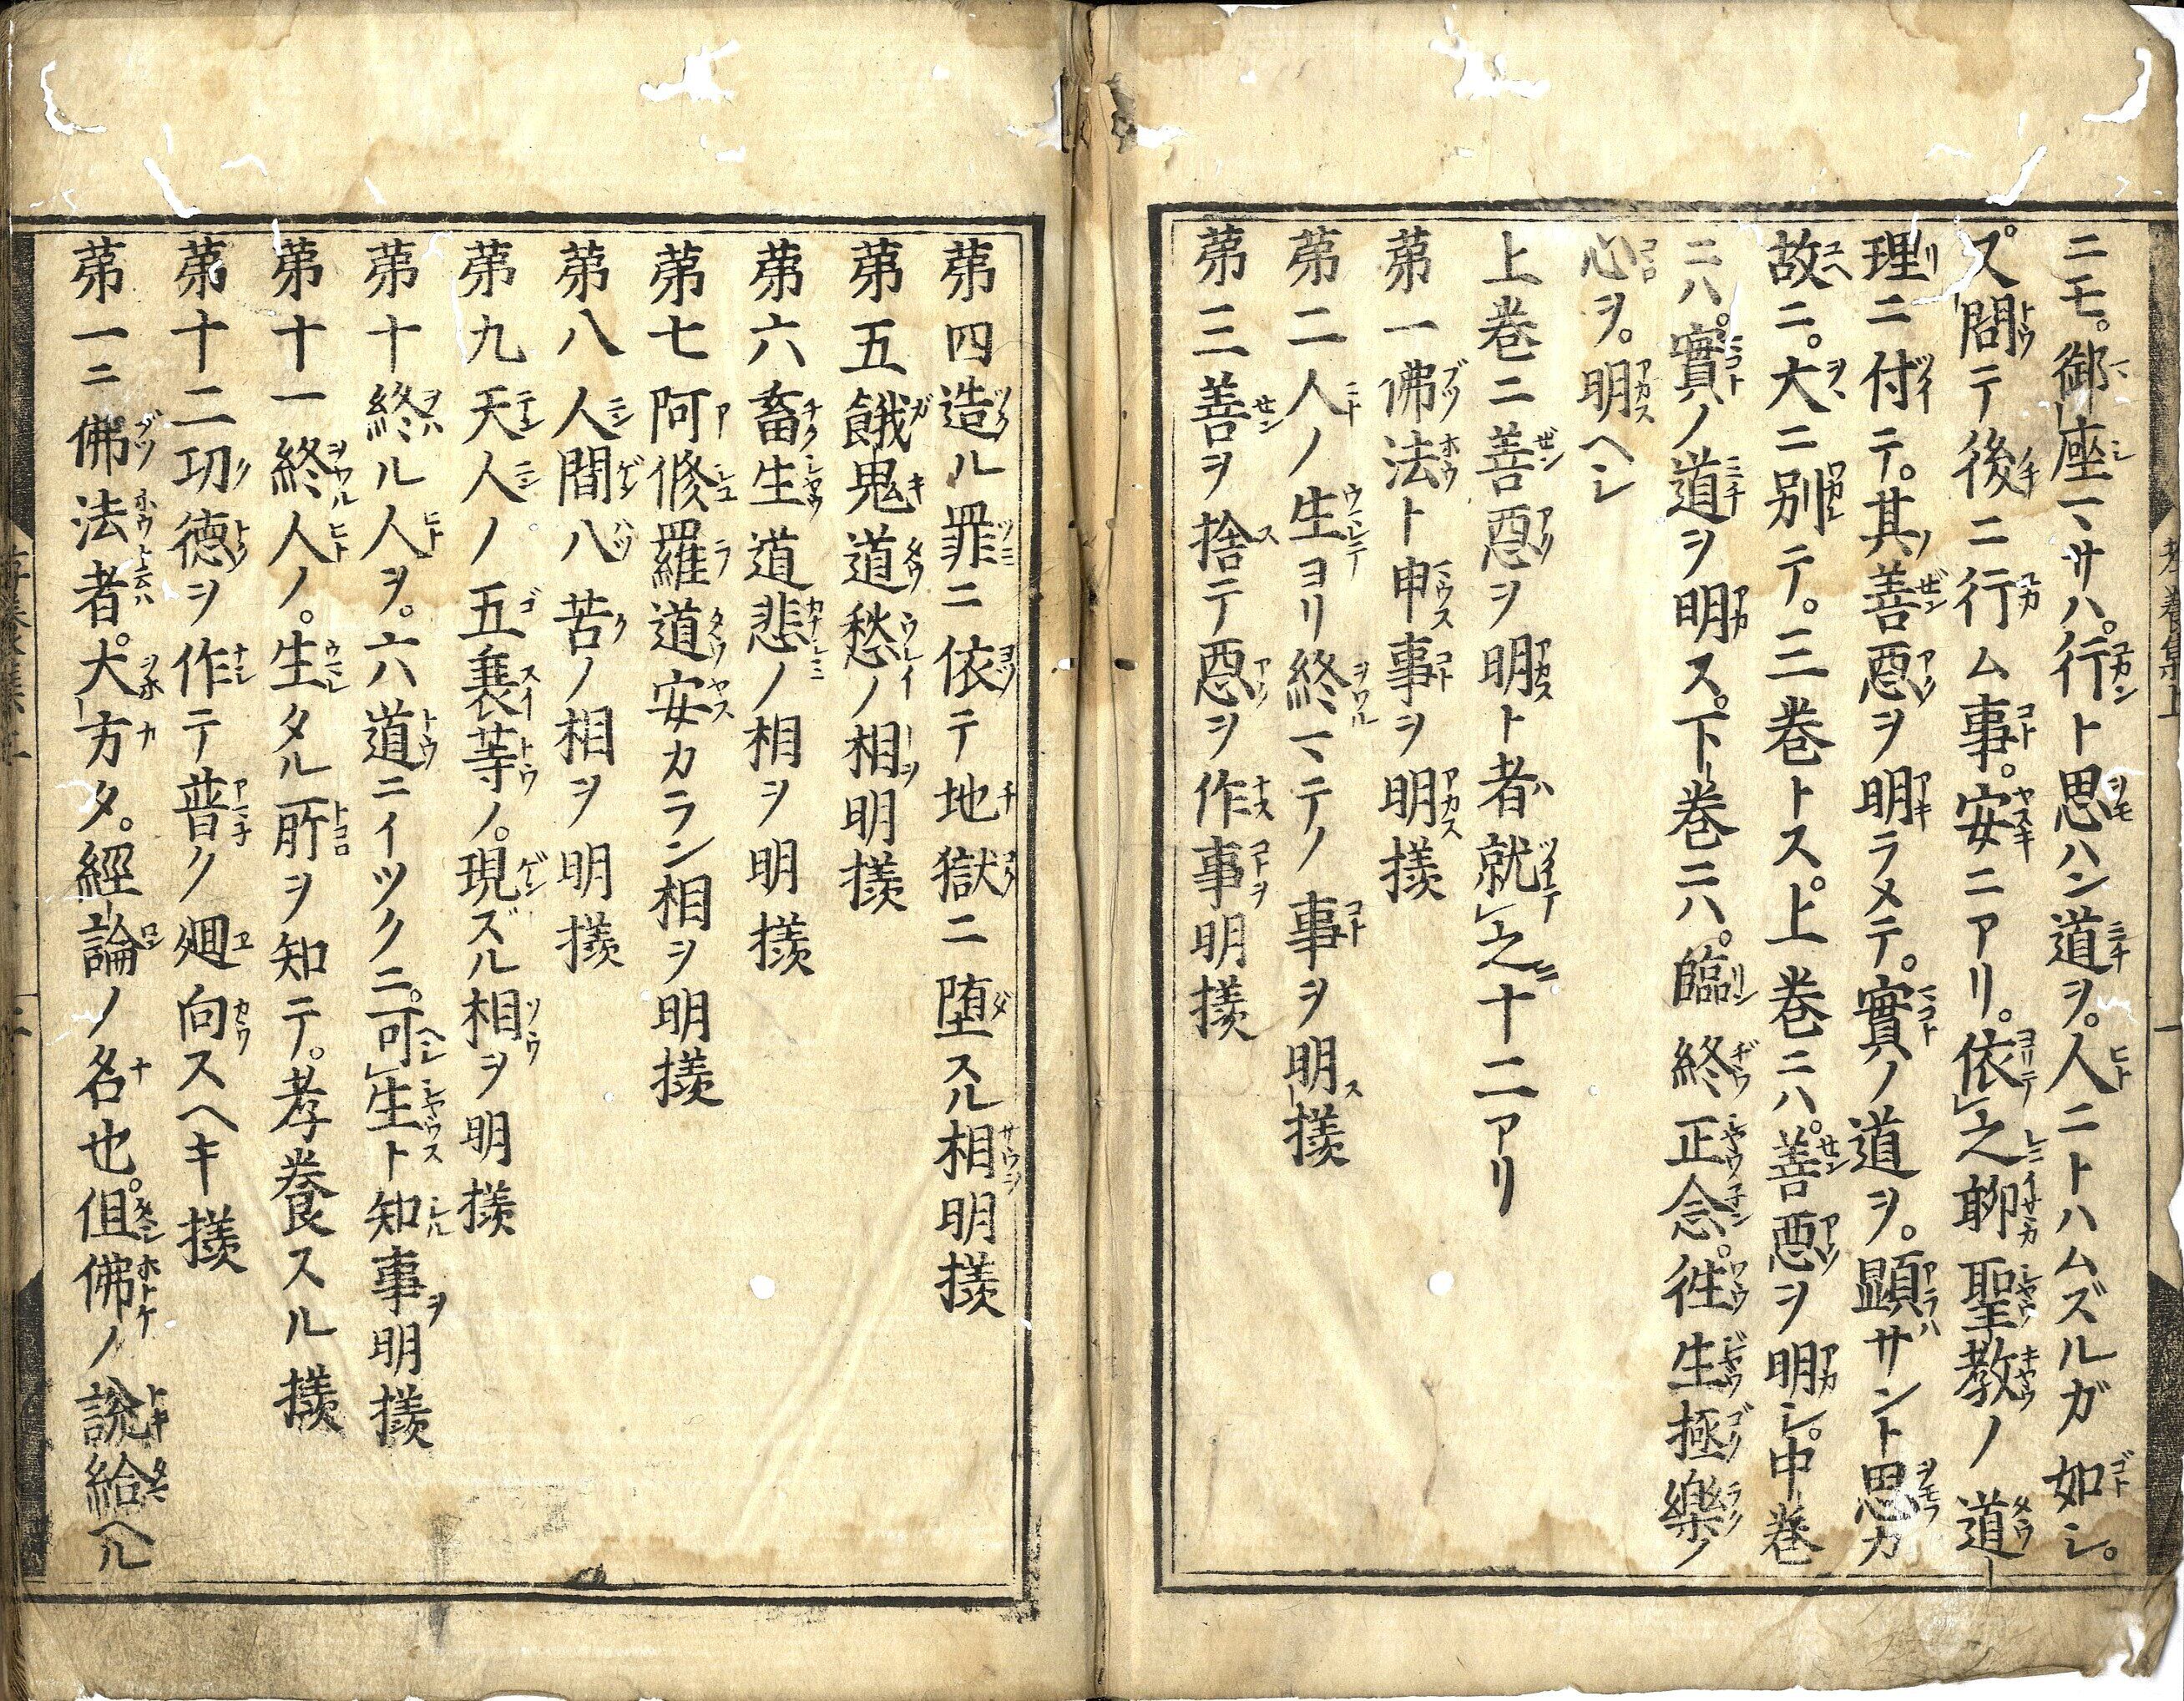 ニモ。御座マサハ。行ト思ハン道ヲ。人ニトハムズルガ如シ。
又問テ後ニ行ム事。安ニアリ。依之聊聖教ノ道
理ニ付テ。其善惡ヲ明ラメテ。實ノ道ヲ。顕サント思カ
故ニ。大ニ別テ。三巻トス。上巻ニハ。善惡ヲ明シ。中巻
ニハ。實ノ道ヲ明ス。下巻ニハ。臨終正念。徃生極樂ノ
心ヲ。明ヘシ
上巻ニ善惡ヲ明ト者就之十二アリ
第一佛法ト申事ヲ明様
第二人ノ生ヨリ終マテノ事ヲ明様
第三善ヲ捨テ惡ヲ作事明様
第四造ル罪ニ依テ地獄ニ堕スル相明様
第五餓鬼道愁ノ相明様
第六畜生道悲ノ相ヲ明様
第七阿修羅道安カラン相ヲ明様
第八人間八苦ノ相ヲ明様
第九天人ノ五衰等ノ。現ズル相ヲ明様
第十終ル人ヲ。六道ニイツクニ。可生ト知事明様
第十一終人ノ。生タル所ヲ知テ。孝養スル様
第十二功徳ヲ作テ普ク廻向スヘキ様
第一ニ佛法者。大方タ。經論ノ名也。但佛ノ説給ヘル